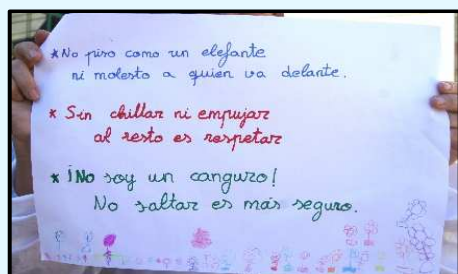 * No piso como un elefante
ni molesto a quien va delante.
* Sin chillar ni empujar
al resto es respetar
* ¡No soy un canguro!
No saltar es más seguro.